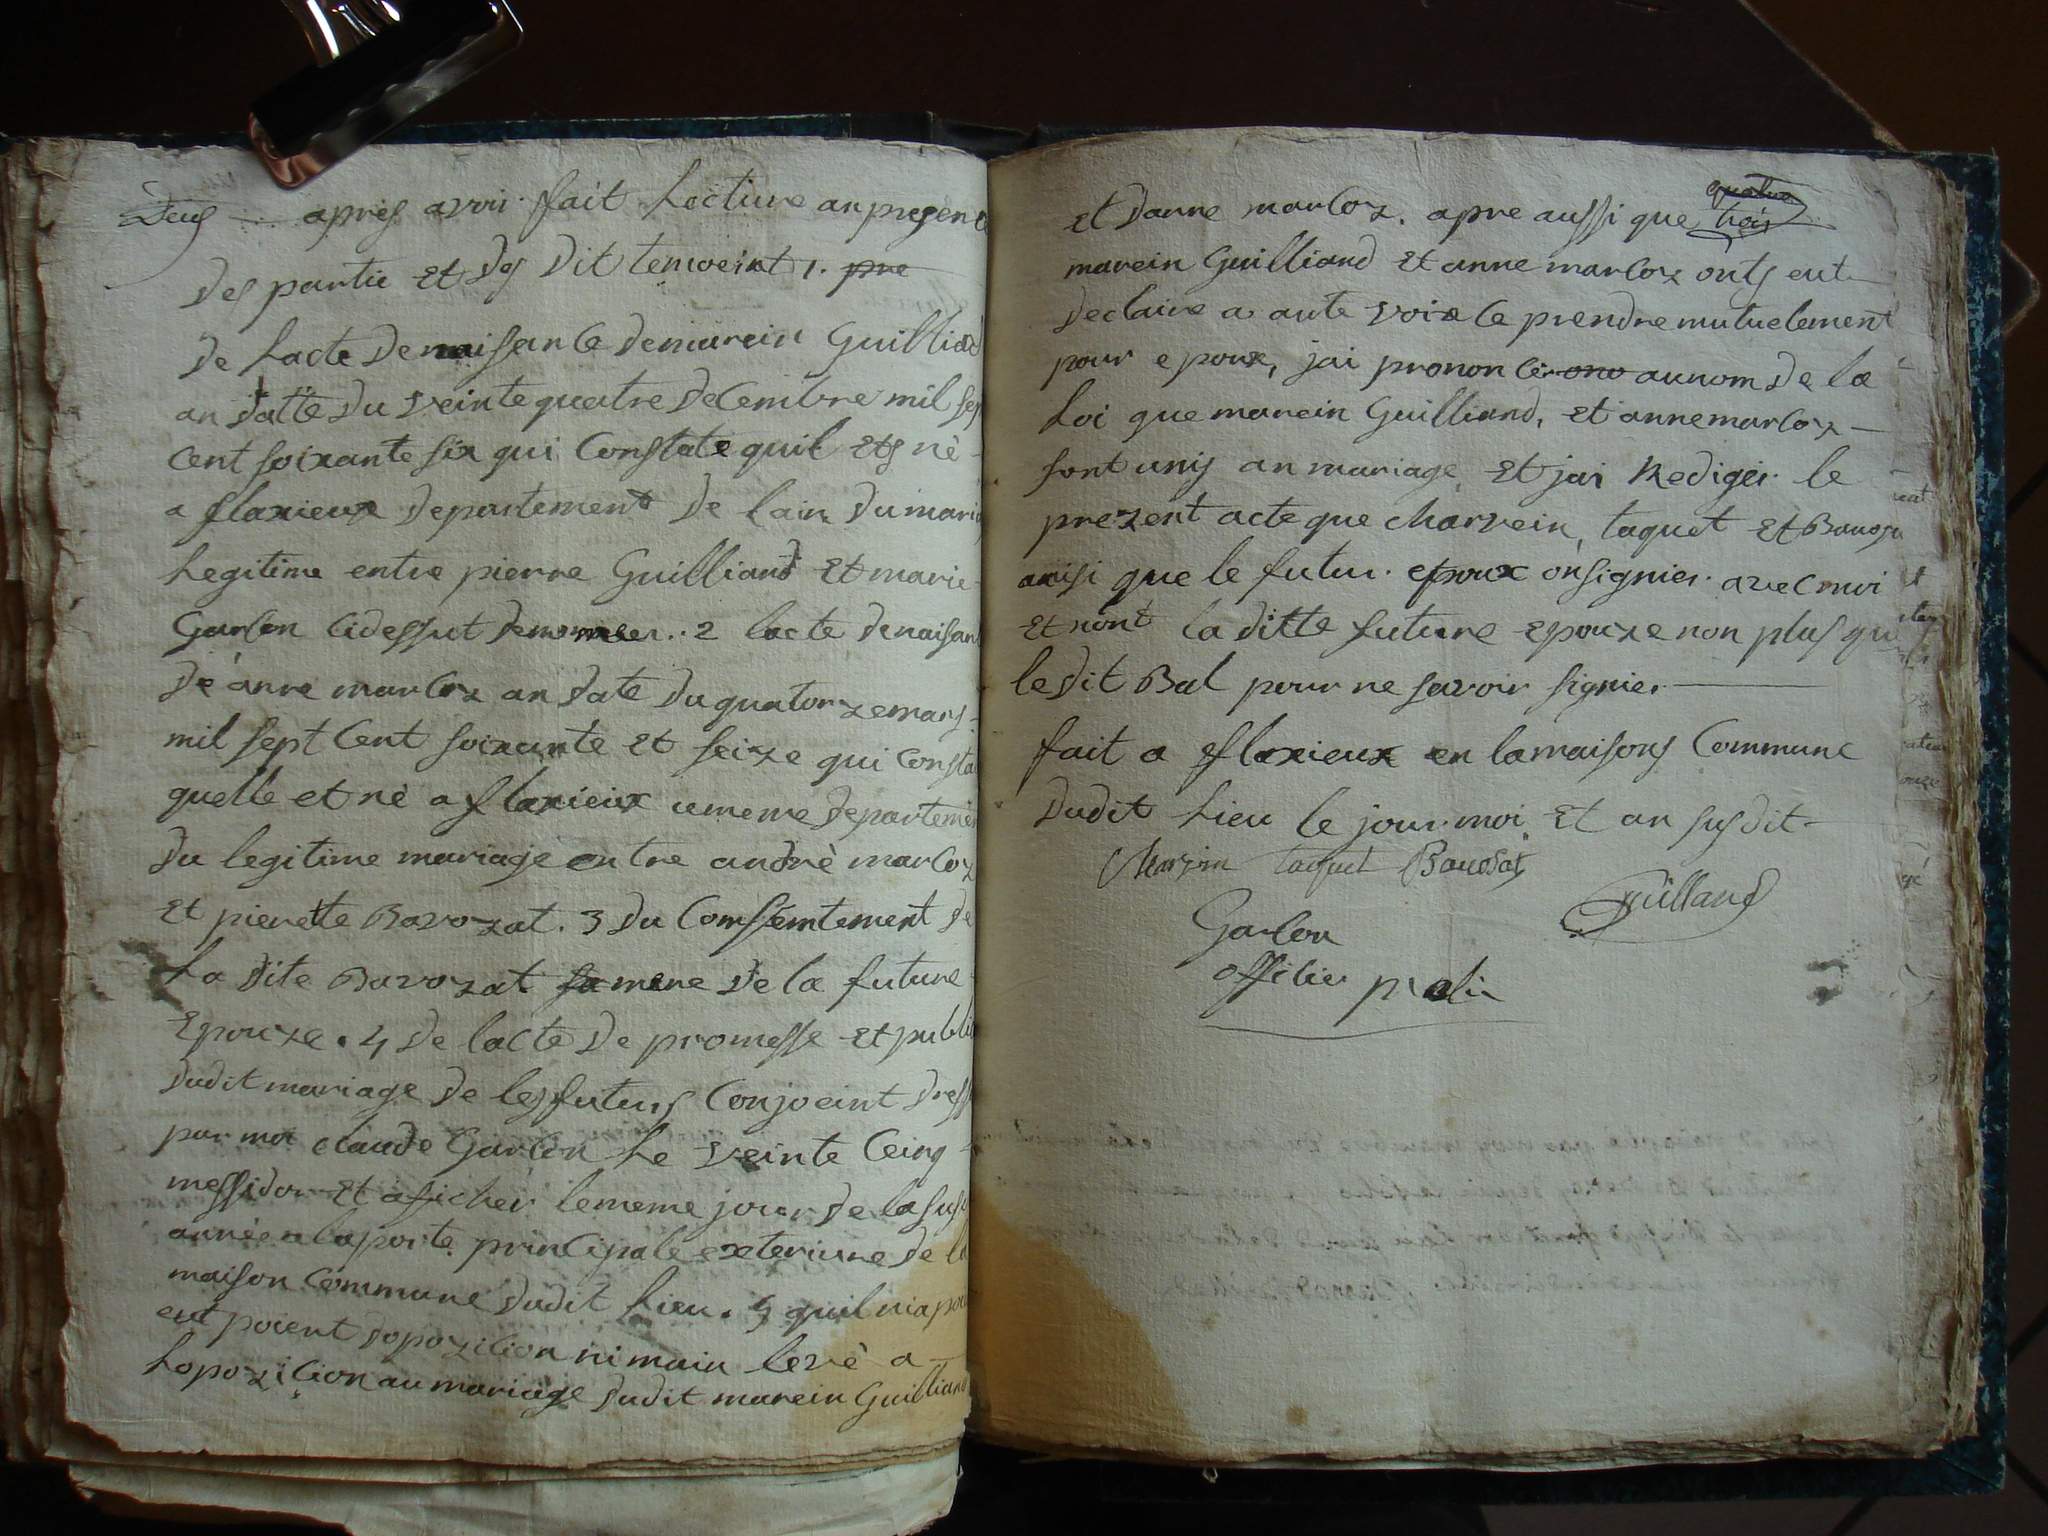 Deus apres avoir fait Lecture an presence
des partie Et des Dit temoeint 1. pre
De Lacte De naisance De marein Guilliand
an datte Du veinte quatre decembre mil sept
cent soixante six qui Constate quil Ets né
a flaxieux departement De lain Du mariage
Legitime entre pierre Guilliand Et marie
Garlon Cidessut denommeer. 2 lacte de naisance
De anne marloz an date Du quatorze mars
mil sept Cent soixante Et seize qui Constate
quelle et né a flaxieux u meme departement
Du legitime mariage entre andré marloz
Et pierette Bavozat. 3 Du Comsemtement de
La dite Bavozat sa mere De la future
Epouze. 4 De lacte De promesse Et public
dudit mariage De les futurs Conjoeint Dresse
par moi claude Garlon Le veinte Ceinq
messidor Et afficher le meme jour De la susd
année a la porte principale exterieure De la
maison Commune dudit Lieu. 5 quil nia point
eut poient dopozicion ni main levé a
Lopozicion au mariage dudit marein Guilliand
quatre
et danne marloz. apre aussi que trois
marein Guilliand Et anne marloz onts eut
declaire a aute voix ce prendre mutuelement
pour epoux, jai prononcer ono au nom De la
Loi que marein Guilliand, Et anne marloz
sont unis an mariage Et jai Rediger le
prezent acte que charvein, taquet Et Bavoza
anisi que le futur epoux on signier avec moi
Et nont la ditte future epouze non plus que
le dit Bal pour ne savoir signier
fait a fflaxieux en la maisons Commune
Dudit Lieu le jour moi Et an susdit
Charvin taquet Bavosat
Guilland
Garlon
offilier publi